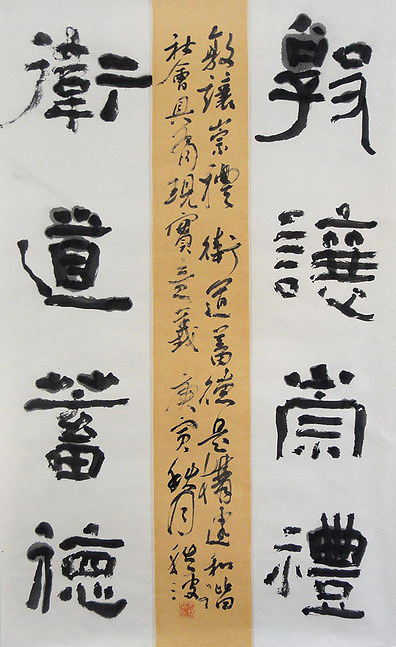 敦讓崇禮
敦讓崇禮衛道蓄德是構建和諧
社會具有現實意義 庚寅秋月
衛道蓄德